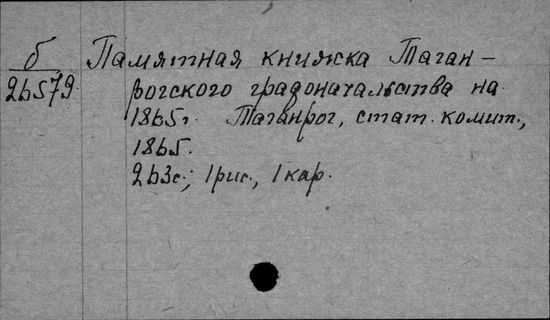 б Памятная книжка Таган-
26579 рогского градоначальства на
1865г. Таганрог, стат. комит.,
1865.
263с.; 1рис., 1кар.